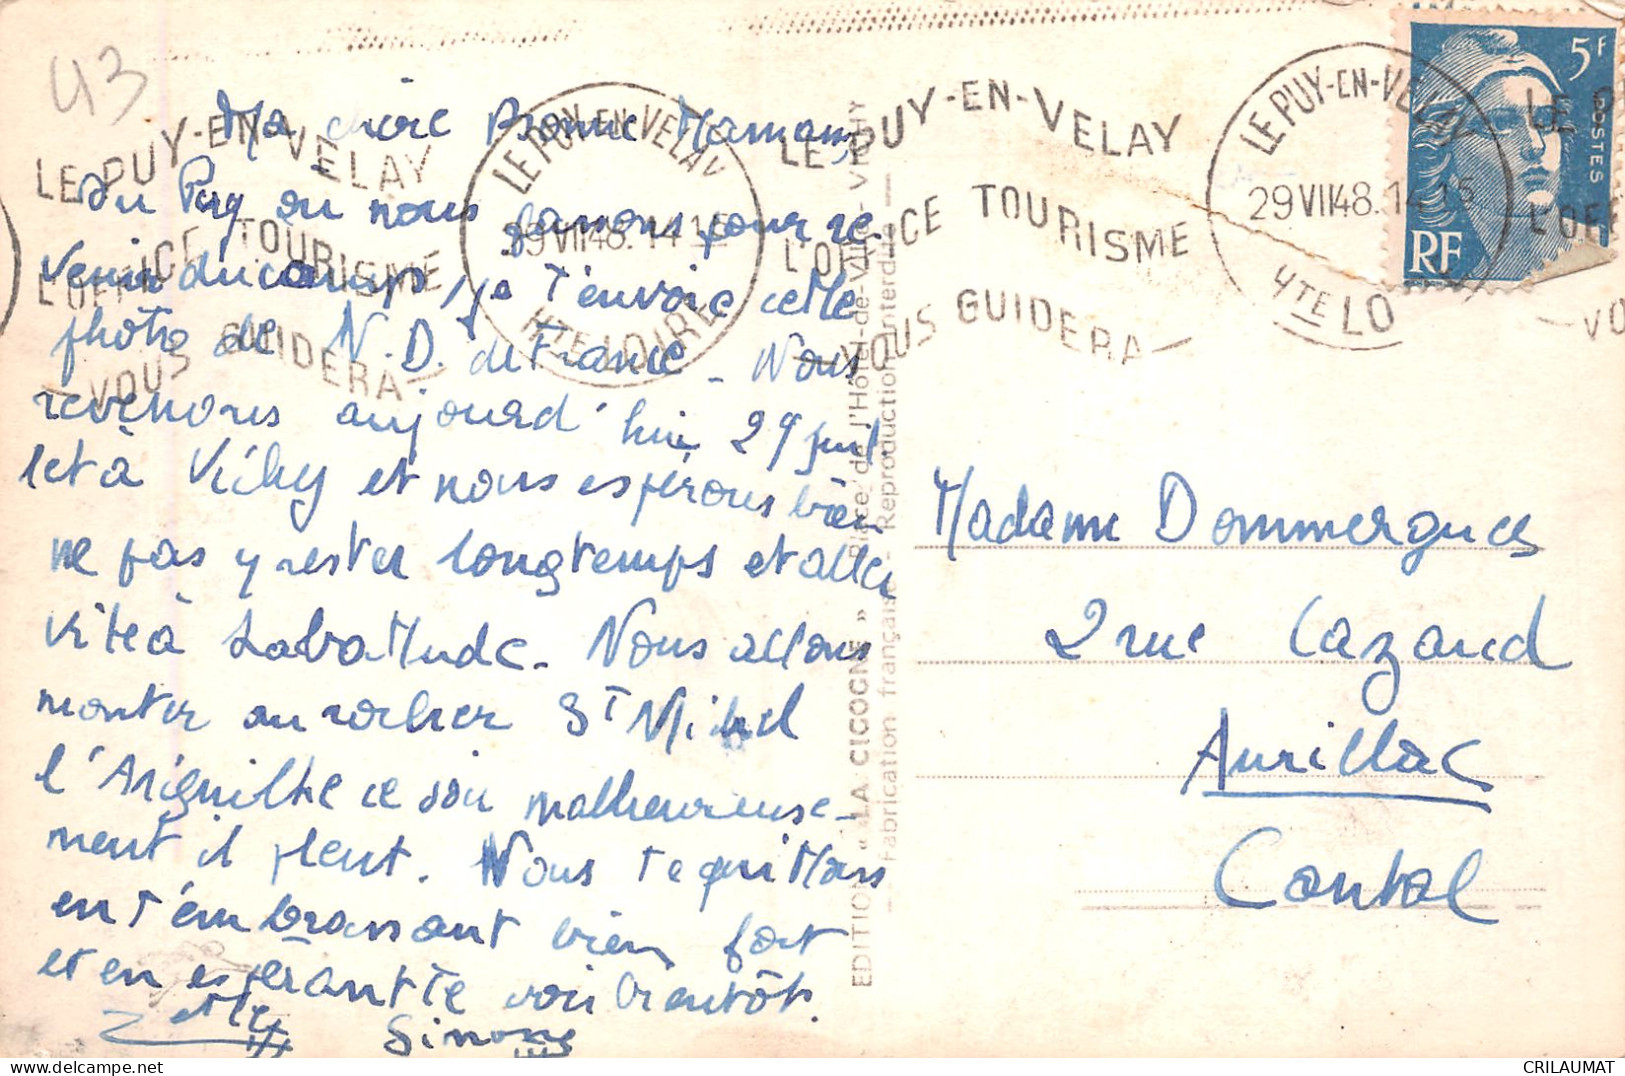 43
Ma chère Bonne Maman,
Du Puy où nous passons pour re-
venir du camp je t'envoie cette
photo de N.D. de France - Nous
revenons aujourd'hui 29 juil
let à Vichy et nous espérons bien
ne pas y rester longtemps et aller
vite à Labatude. Nous allons
monter au rocher St Michel
l'Aiguilhe ce soir malheureuse-
ment il pleut. Nous te quittons
en t'embrassant bien fort
et en espérant te voir bientôt.
Simone
LE PUY-EN-VELAY
L'OFFICE TOURISME
VOUS GUIDERA
LE PUY-EN-VELAY
29 VII 48. 14 15
HTE LOIRE
LE PUY-EN-VELAY
L'OFFICE TOURISME
VOUS GUIDERA
LE PUY-EN-VELAY
29 VII 48. 14 15
HTE LO
LE P
L'OFF
VO
5F
POSTES
RF
EDITION « LA CICOGNE » Place de l'Hôtel-de-Ville - VICHY
Fabrication française - Reproduction interdite
Madame Dommergues
2 rue Cazaud
Aurillac
Cantal
CRILAUMAT